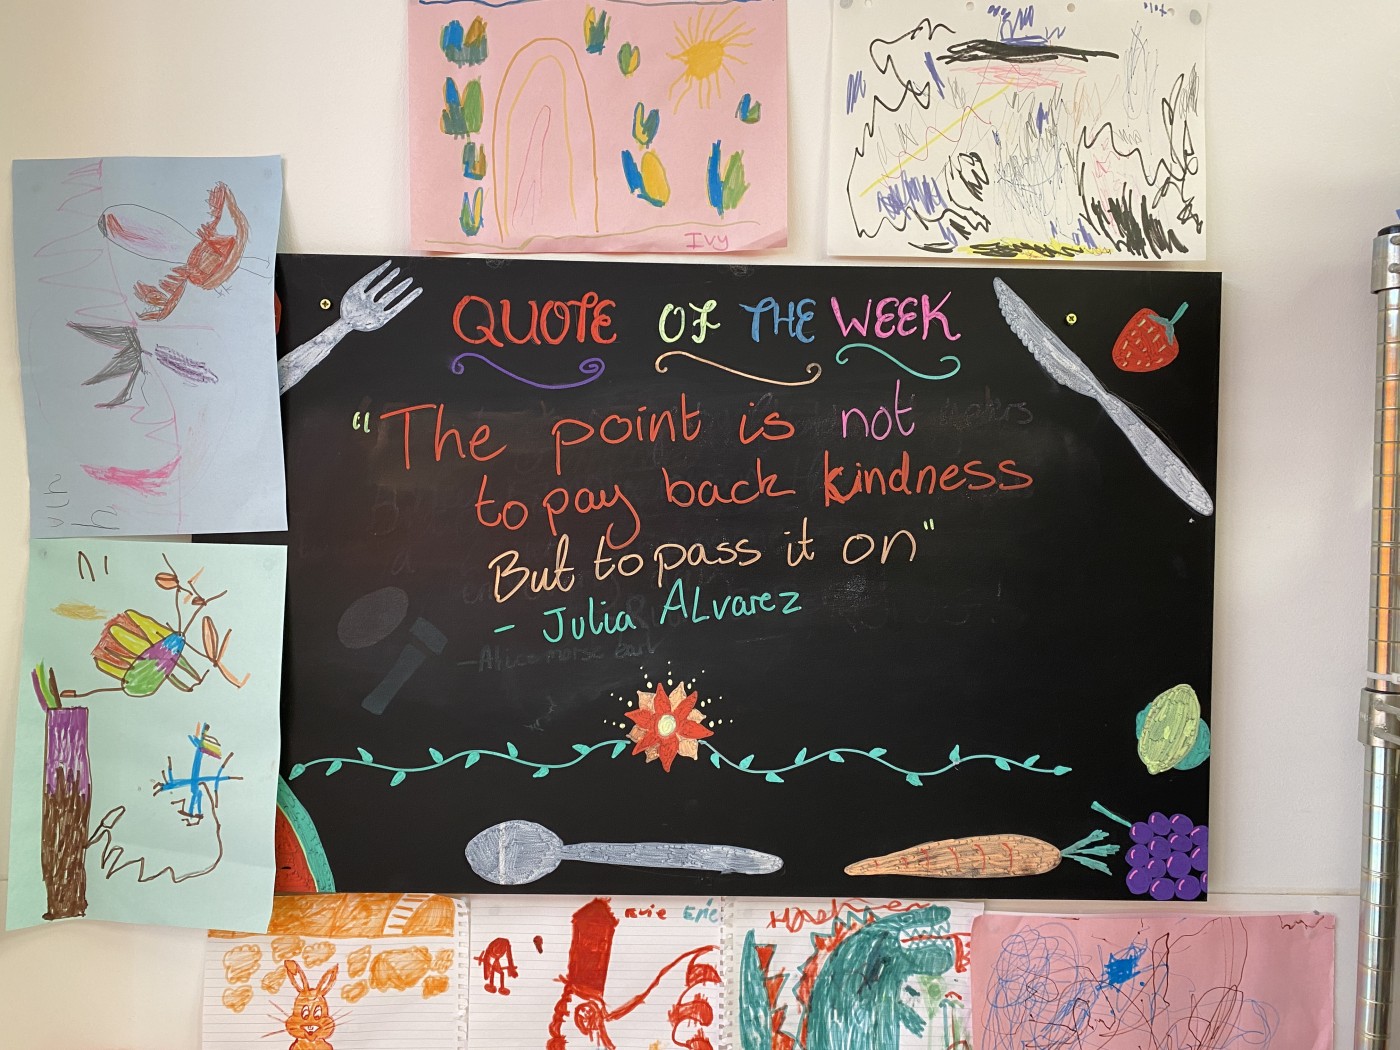 Ivy
QUOTE OF THE WEEK
"The point is not
to pay back kindness
But to pass it on"
- Julia ALvarez
- Alice morse earl
Evie Eric